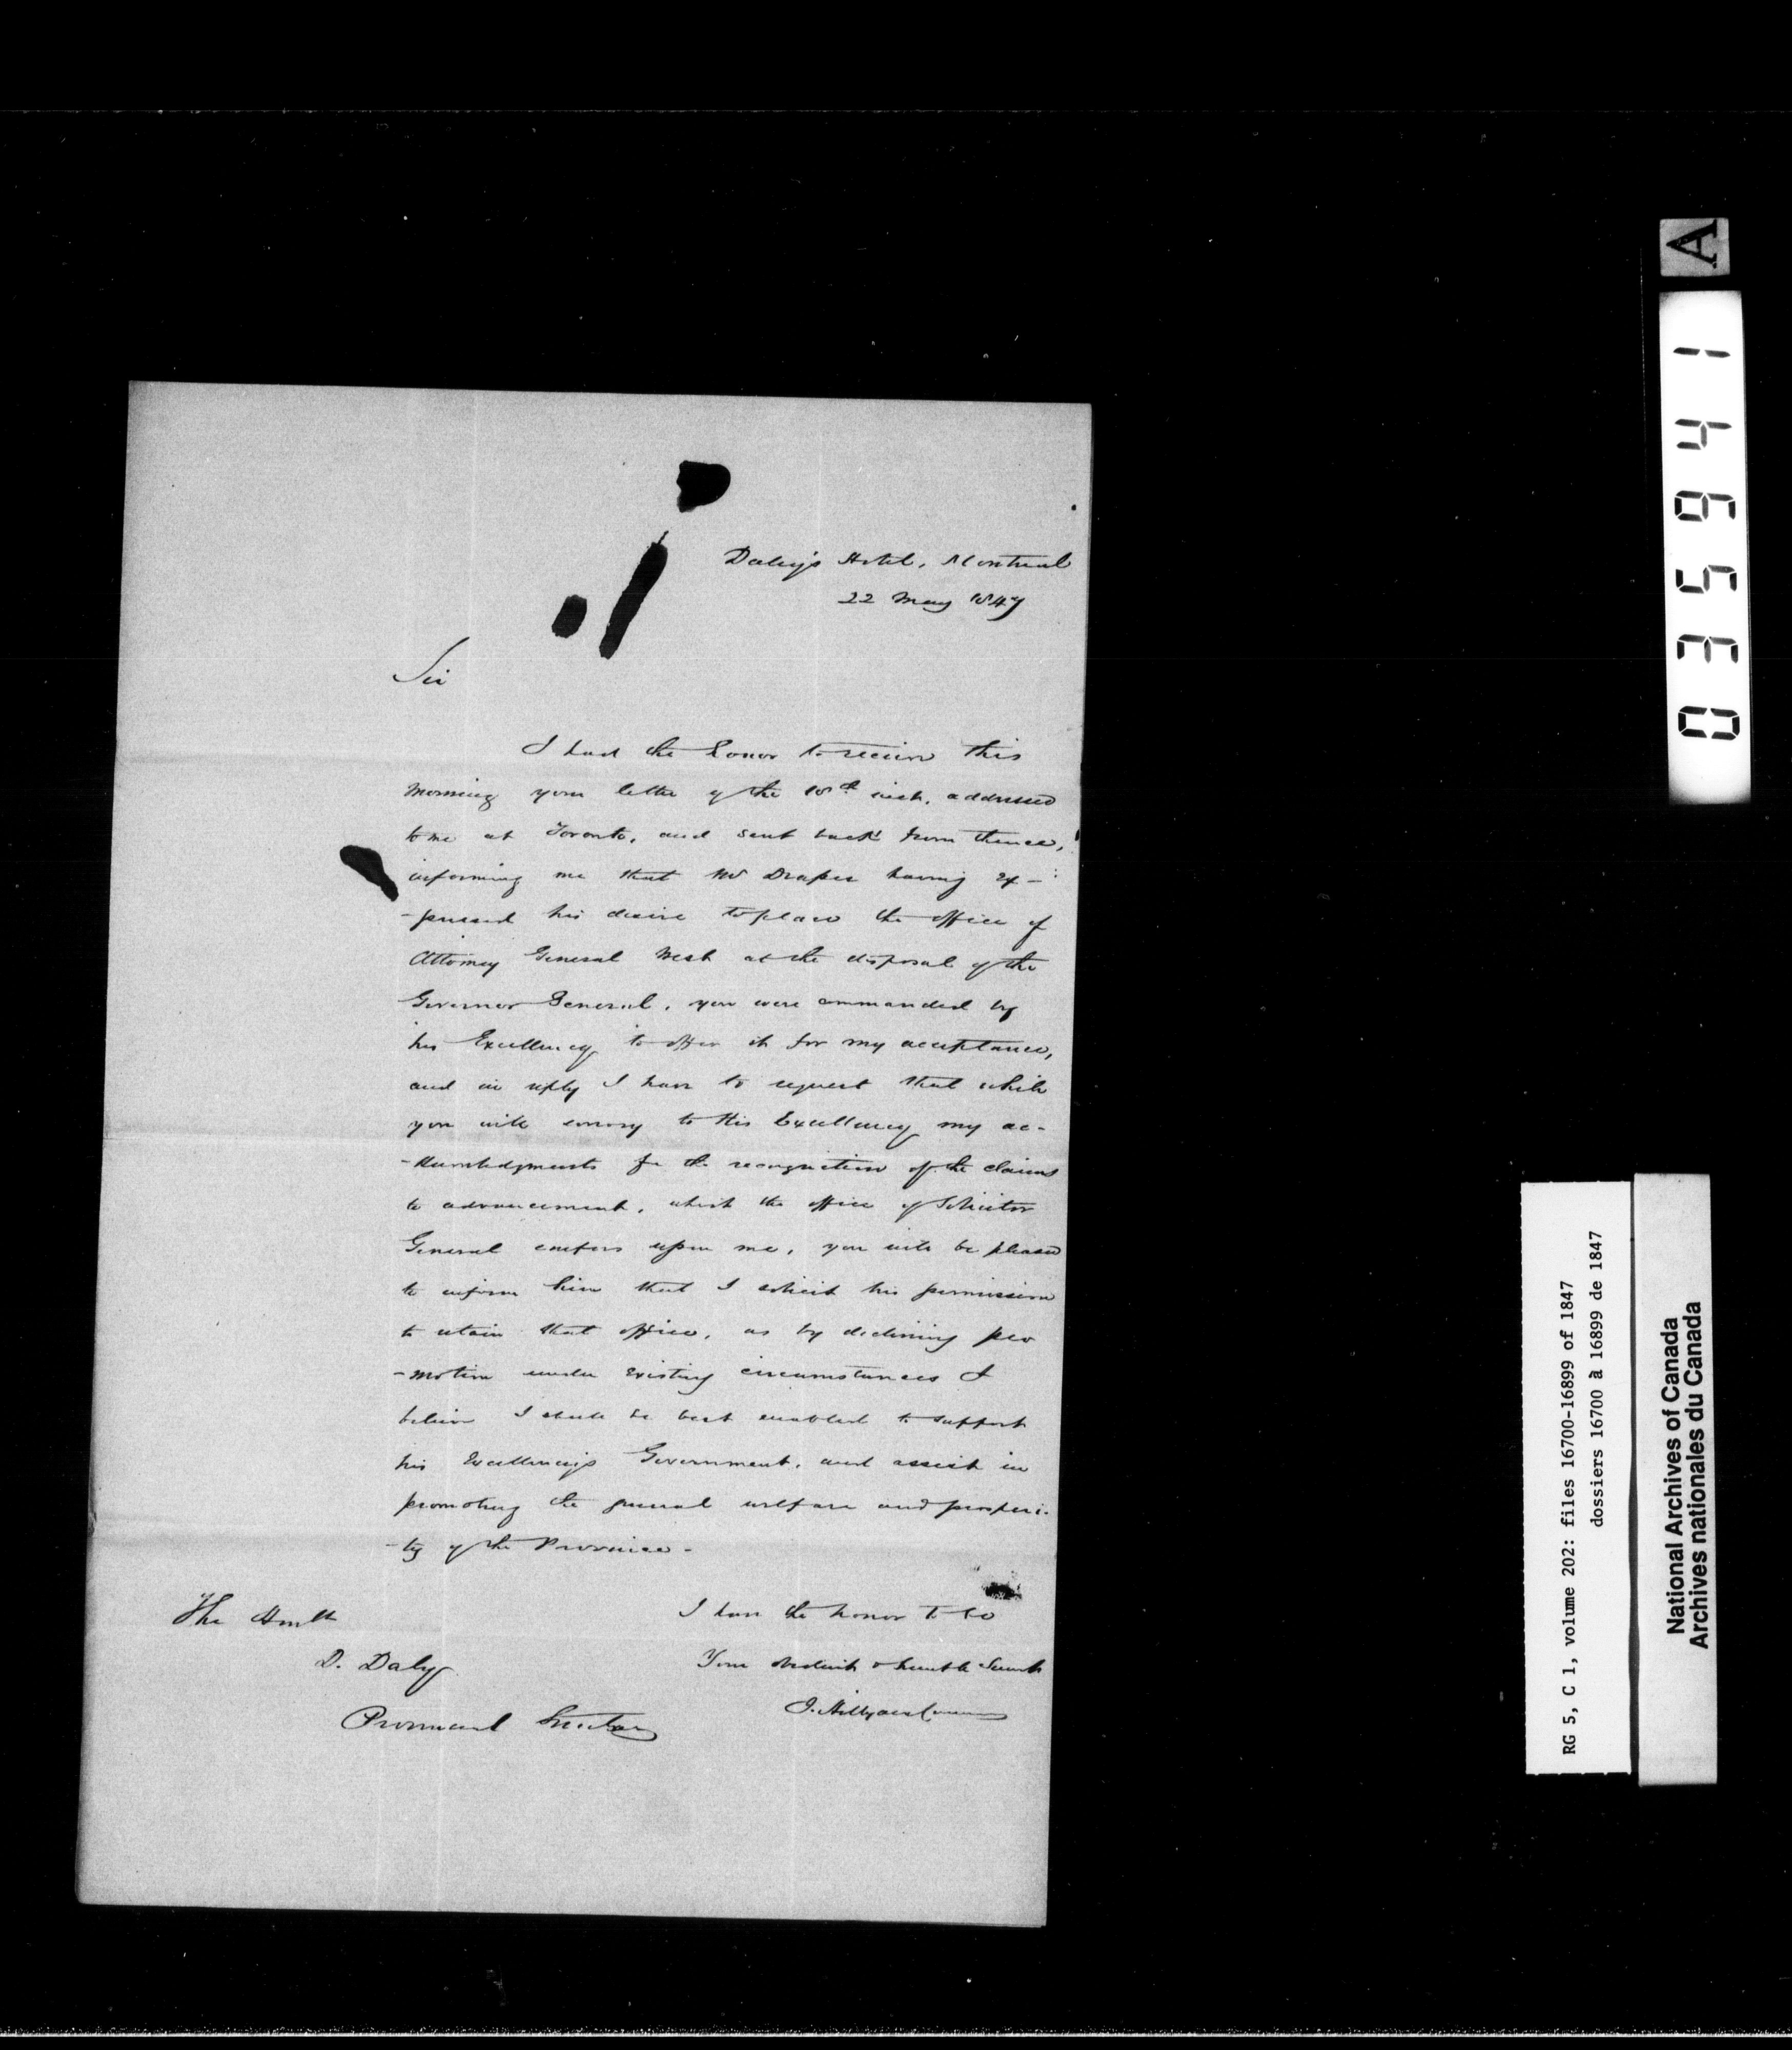 Daley's Hotel, Montreal
22 May 1847
Sir
I had the honor to receive this
morning your letter of the 18th inst. addressed
to me at Toronto, and sent back from thence,
informing me that Mr Draper having ex-
-pressed his desire to place the office of
Attorney General West at the disposal of the
Governor General, you were commanded by
his Excellency to offer it for my acceptance,
and in reply I have to request that while
you will convey to His Excellency my ac-
-knowledgments for the recognition of the claims
to advancement, which the office of Solicitor
General confers upon me, you will be pleased
to inform him that I solicit his permission
to retain that office, as by declining pro
-motion under existing circumstances I
believe I shall be best enabled to support
his Excellency's Government, and assist in
promoting the general welfare and prosperi-
-ty of the Province -
I have the honor to be
Your obedient & humble Servt
J. Hillyard Cameron
The Honble
D. Daly
Provincial Secretary
A
035941
RG 5, C 1, volume 202: files 16700-16899 of 1847
dossiers 16700 à 16899 de 1847
National Archives of Canada
Archives nationales du Canada